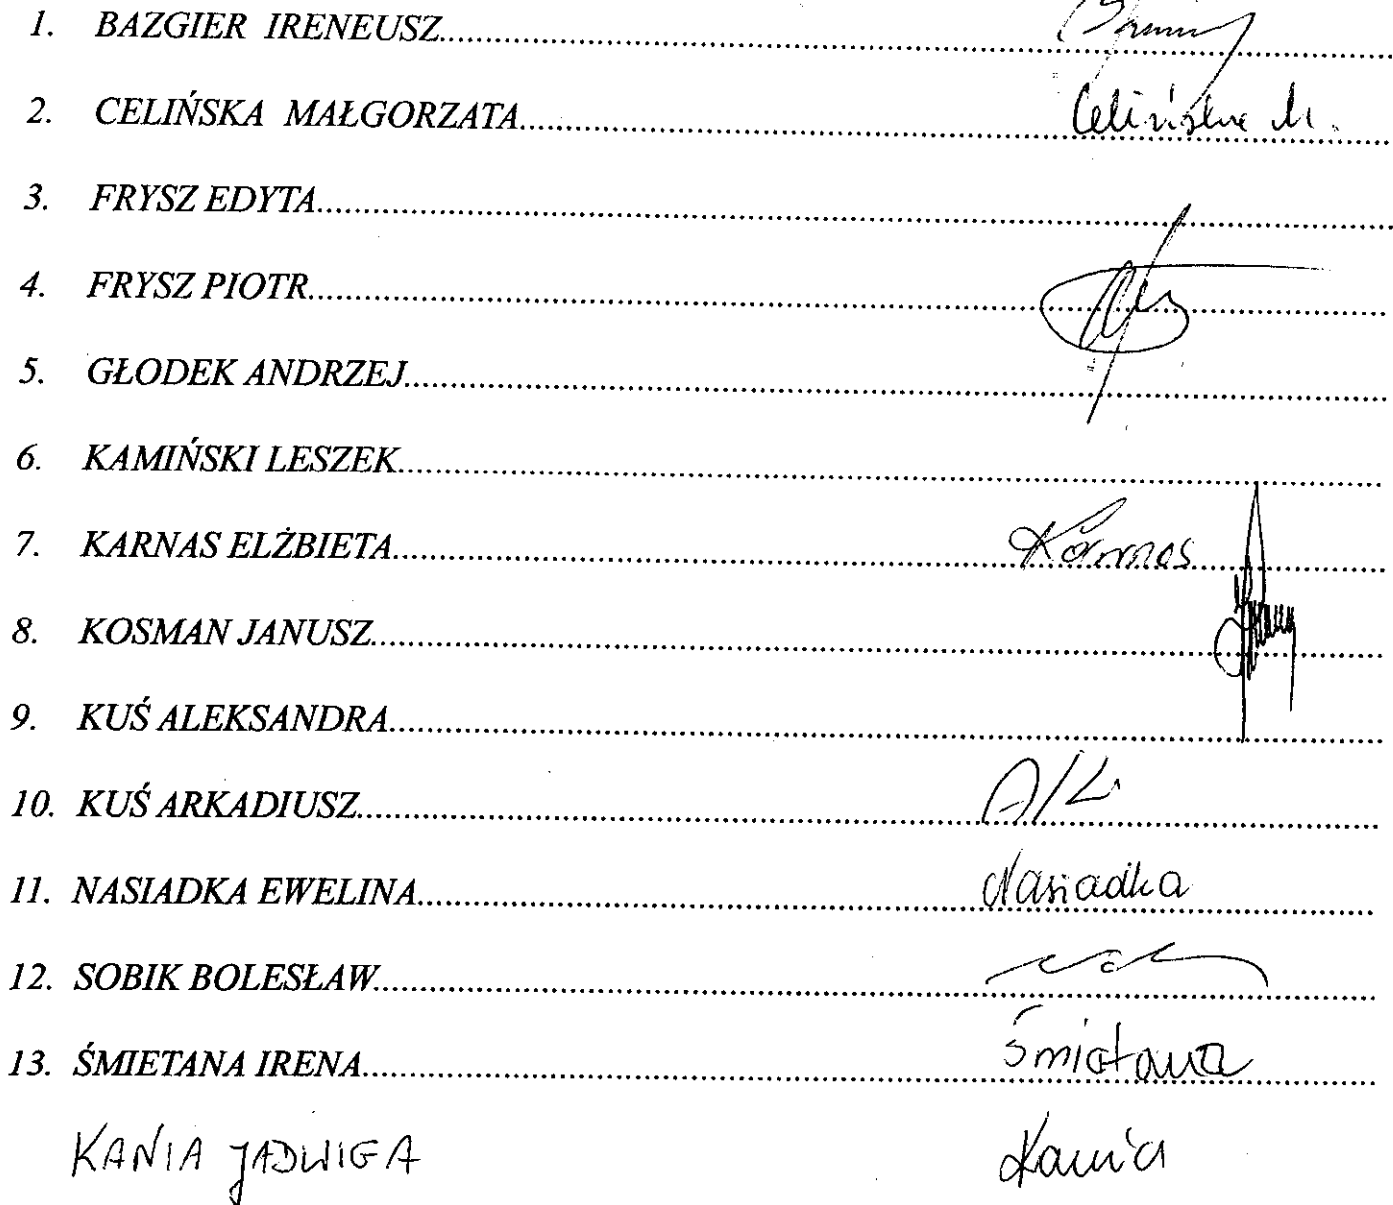 1. BAZGIER IRENEUSZ
2. CELIŃSKA MAŁGORZATA Celińska M.
3. FRYSZ EDYTA
4. FRYSZ PIOTR
5. GŁODEK ANDRZEJ
6. KAMIŃSKI LESZEK
7. KARNAS ELŻBIETA Karnas
8. KOSMAN JANUSZ
9. KUŚ ALEKSANDRA
10. KUŚ ARKADIUSZ
11. NASIADKA EWELINA Nasiadka
12. SOBIK BOLESŁAW
13. ŚMIETANA IRENA Śmietana
KANIA JADWIGA Kania